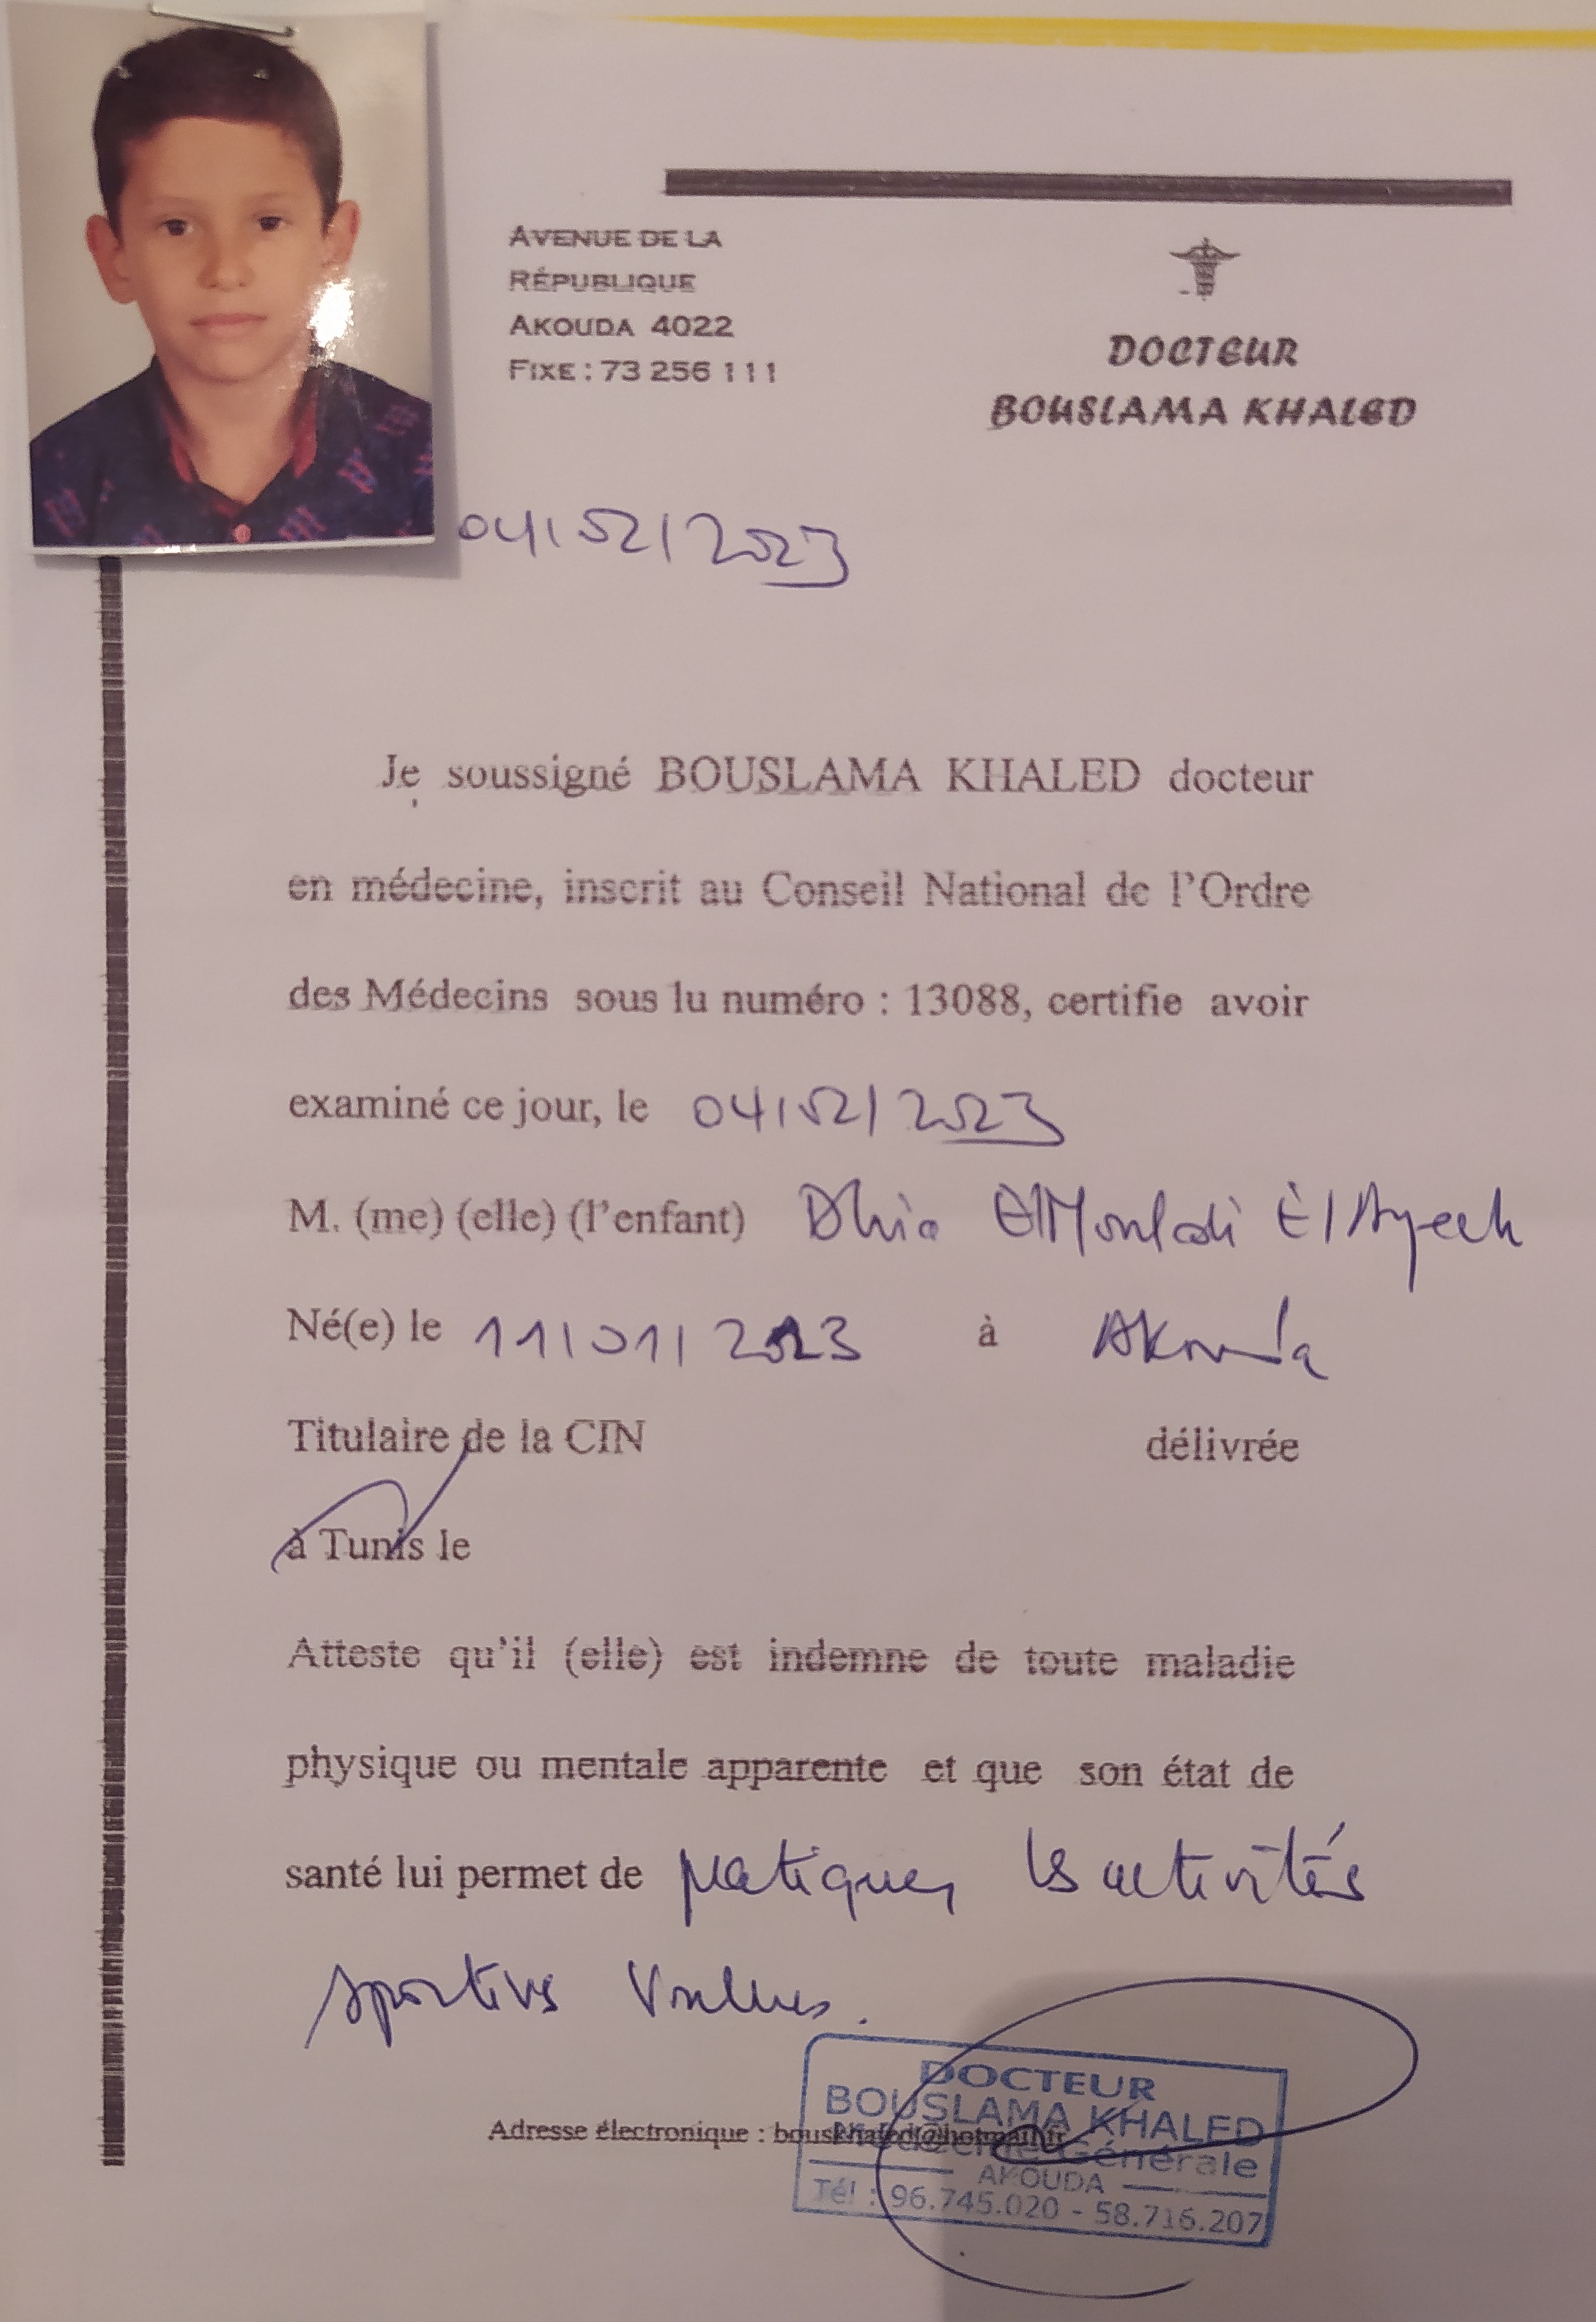 AVENUE DE LA
RÉPUBLIQUE
AKOUDA 4022
FIXE : 73 256 111
DOCTEUR
BOUSLAMA KHALED
04/02/2023
Je soussigné BOUSLAMA KHALED docteur
en médecine, inscrit au Conseil National de l'Ordre
des Médecins sous lu numéro : 13088, certifie avoir
examiné ce jour, le 04/02/2023
M. (me) (elle) (l'enfant) Dhia El Mouldi El Ayech
Né(e) le 11/01/2013 à Akouda
Titulaire de la CIN délivrée
à Tunis le
Atteste qu'il (elle) est indemne de toute maladie
physique ou mentale apparente et que son état de
santé lui permet de pratiquer les activités
sportives voulues.
Adresse électronique : bouskhaled@hotmail.fr
DOCTEUR
BOUSLAMA KHALED
Médecine Générale
AKOUDA
Tél : 96.745.020 - 58.716.207